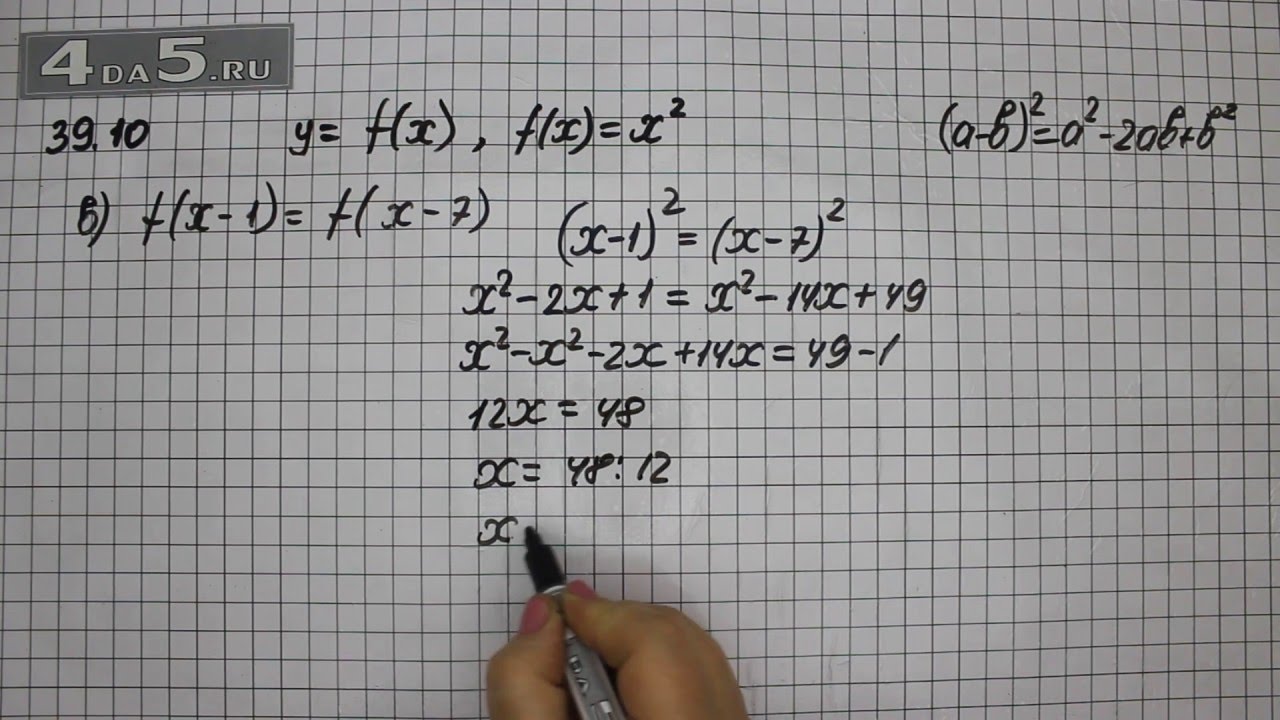 4DA5.RU
39.10 y= f(x), f(x)=x² (a-b)²=a²-2ab+b²
в) f(x-1)= f(x-7) (x-1)²=(x-7)²
x²-2x+1=x²-14x+49
x²-x²-2x+14x=49-1
12x=48
x= 48:12
x